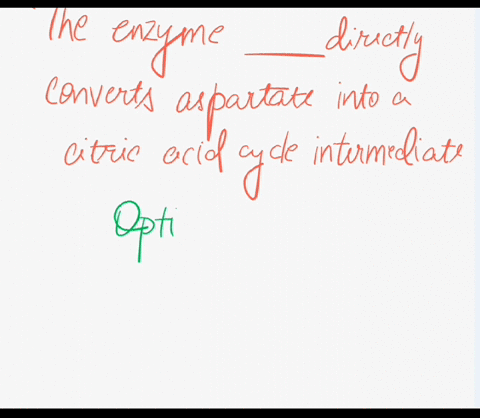 The enzyme ____ directly
converts aspartate into a
citric acid cycle intermediate
Opti